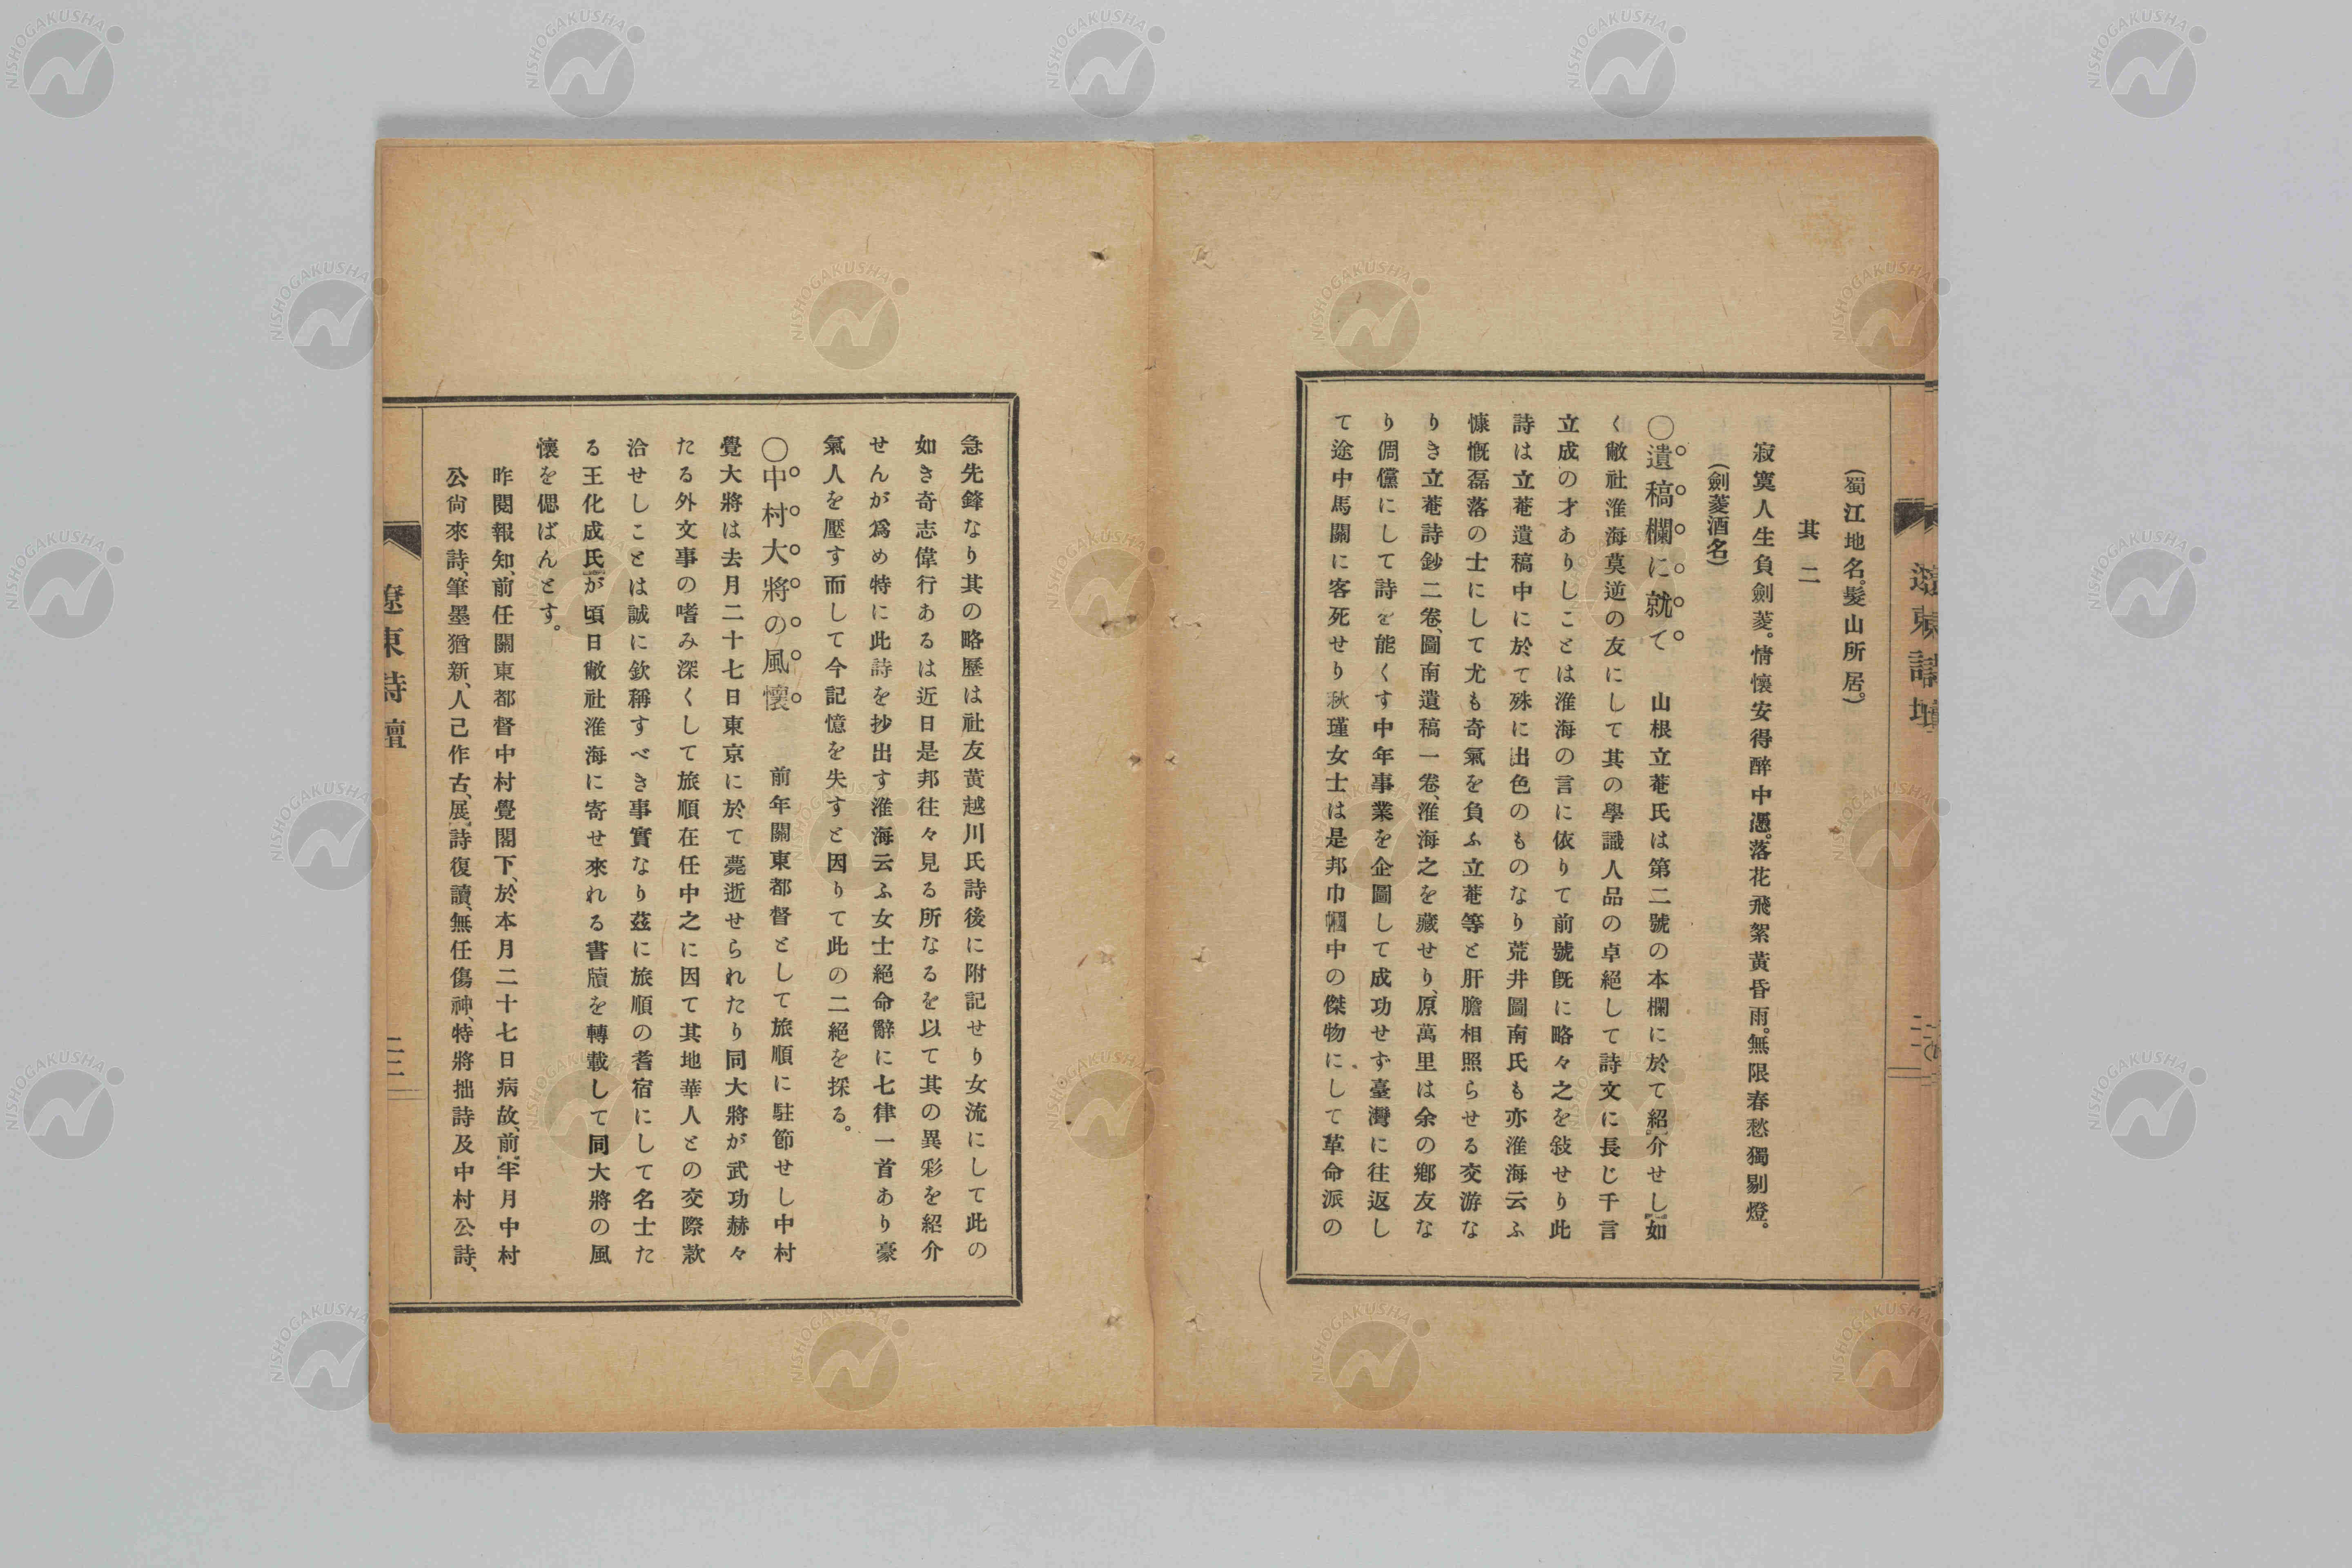 遼東詩壇
(蜀江地名。髮山所居。)
其二
寂寞人生負劍菱。情懷安得醉中憑。落花飛絮黃昏雨。無限春愁獨剔燈。
(劍菱酒名)
〇遺稿欄に就て 山根立菴氏は第二號の本欄に於て紹介せし如
く敝社淮海莫逆の友にして其の學識人品の卓絕して詩文に長じ千言
立成の才ありしことは淮海の言に依りて前號既に略々之を敍せり此
詩は立菴遺稿中に於て殊に出色のものなり荒井圖南氏も亦淮海云ふ
慷慨磊落の士にして尤も奇氣を負ふ立菴等と肝膽相照らせる交游な
りき立菴詩鈔二卷、圖南遺稿一卷、淮海之を藏せり、原萬里は余の鄉友な
り倜儻にして詩を能くす中年事業を企圖して成功せず臺灣に往返し
て途中馬關に客死せり秋瑾女士は是邦巾幗中の傑物にして革命派の
急先鋒なり其の略歷は社友黃越川氏詩後に附記せり女流にして此の
如き奇志偉行あるは近日是邦往々見る所なるを以て其の異彩を紹介
せんが爲め特に此詩を抄出す淮海云ふ女士絕命辭に七律一首あり豪
氣人を壓す而して今記憶を失すと因りて此の二絕を採る。
〇中村大將の風懷 前年關東都督として旅順に駐節せし中村
覺大將は去月二十七日東京に於て薨逝せられたり同大將が武功赫々
たる外文事の嗜み深くして旅順在任中之に因て其地華人との交際款
洽せしことは誠に欽稱すべき事實なり茲に旅順の耆宿にして名士た
る王化成氏が頃日敝社淮海に寄せ來れる書牘を轉載して同大將の風
懷を偲ばんとす。
昨閱報知、前任關東都督中村覺閣下、於本月二十七日病故、前半月中村
公尙來詩、筆墨猶新、人已作古、展詩復讀、無任傷神、特將拙詩及中村公詩、
遼東詩壇
二一